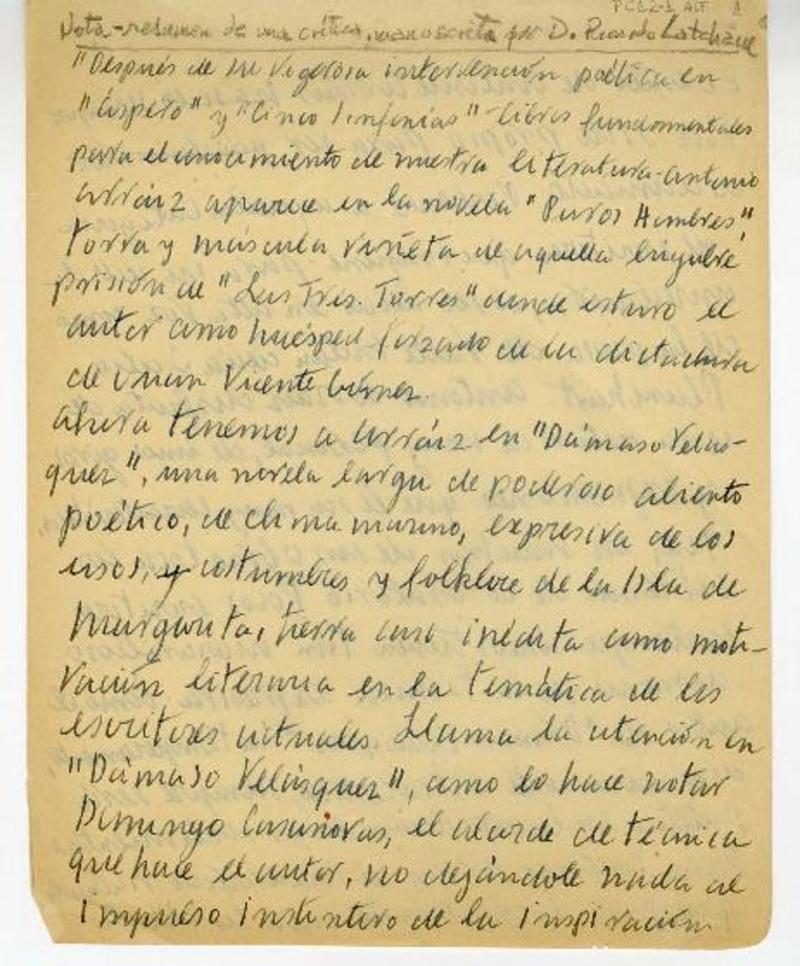 Nota-resumen de una crítica, manoscrita por D. Ricardo Latcham
"Después de su vigorosa intervención poética en
"Áspero" y "Cinco Sinfonías" -libros fundamentales
para el conocimiento de nuestra literatura- Antonio
Arráiz aparece en la novela "Puros Hombres",
torva y máscula viñeta de aquella lúgubre
prisión de "Las Tres Torres" donde estuvo el
autor como huésped forzado de la dictadura
de Juan Vicente Gómez.
Ahora tenemos a Arráiz en "Dámaso Velás-
quez", una novela larga de poderoso aliento
poético, de clima marino, expresiva de los
usos, y costumbres y folklore de la Isla de
Margarita, tierra casi inédita como moti-
vación literaria en la temática de los
escritores actuales. Llama la atención en
"Dámaso Velásquez", como lo hace notar
Domingo Casanovas, el alarde de técnica
que hace el autor, no dejándole nada al
impulso instintivo de la inspiración